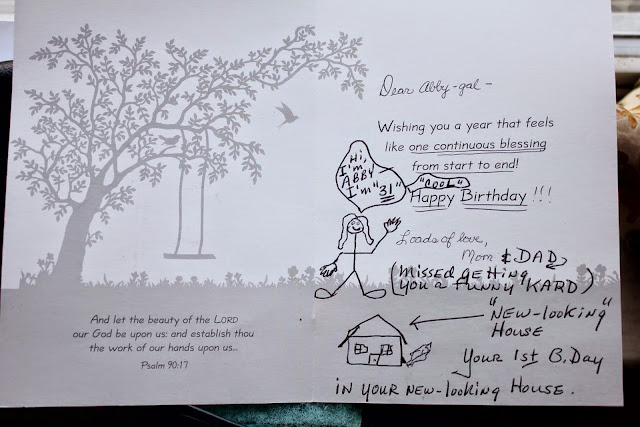 And let the beauty of the LORD
our God be upon us: and establish thou
the work of our hands upon us...
Psalm 90:17
Dear Abby-gal -
Wishing you a year that feels
like one continuous blessing
from start to end!
"COOL"
Happy Birthday !!!
Hi,
I'm,
ABBY
I'm "31"
Loads of love,
Mom & DAD
(MISSED GETTING
YOU A FUNNY "KARD)
"NEW-looking"
HOUSE
Your 1st B.Day
IN YOUR NEW-looking HOUSE.